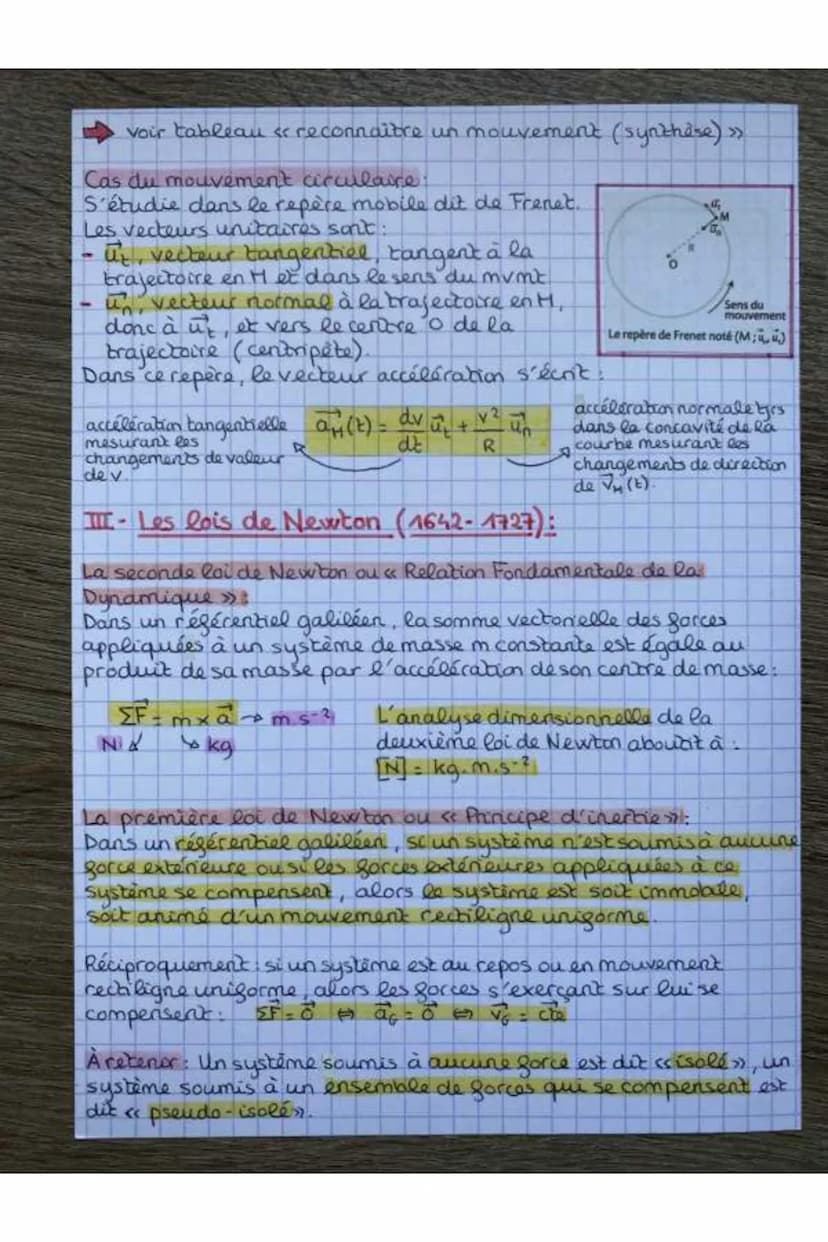 ➡ voir tableau « reconnaître un mouvement (synthèse) »
Cas du mouvement circulaire :
S'étudie dans le repère mobile dit de Frenet.
Les vecteurs unitaires sont :
- u⃗t, vecteur tangentiel, tangent à la
trajectoire en M et dans le sens du mvmt
- u⃗n, vecteur normal à la trajectoire en M,
donc à u⃗t, et vers le centre O de la
trajectoire (centripète).
u⃗t
M
u⃗n
R
O
Sens du
mouvement
Le repère de Frenet noté (M ; u⃗n, u⃗t)
Dans ce repère, le vecteur accélération s'écrit :
accélération tangentielle
mesurant les
changements de valeur
de v.
a⃗M(t) = dv/dt u⃗t + v²/R u⃗n
accélération normale tjrs
dans la concavité de la
courbe mesurant les
changements de direction
de v⃗M(t).
III - Les lois de Newton (1642-1727) :
La seconde loi de Newton ou « Relation Fondamentale de la
Dynamique » :
Dans un référentiel galiléen, la somme vectorielle des forces
appliquées à un système de masse m constante est égale au
produit de sa masse par l'accélération de son centre de masse :
ΣF⃗ = m × a⃗ → m.s⁻²
N kg
L'analyse dimensionnelle de la
deuxième loi de Newton aboutit à :
[N] = kg.m.s⁻²
La première loi de Newton ou « Principe d'inertie » :
Dans un référentiel galiléen, si un système n'est soumis à aucune
force extérieure ou si les forces extérieures appliquées à ce
système se compensent, alors le système est soit immobile,
soit animé d'un mouvement rectiligne uniforme.
Réciproquement : si un système est au repos ou en mouvement
rectiligne uniforme, alors les forces s'exerçant sur lui se
compensent : ΣF⃗ = 0⃗ ⇔ a⃗G = 0⃗ ⇔ v⃗G = cte
À retenir : Un système soumis à aucune force est dit « isolé », un
système soumis à un ensemble de forces qui se compensent est
dit « pseudo-isolé ».